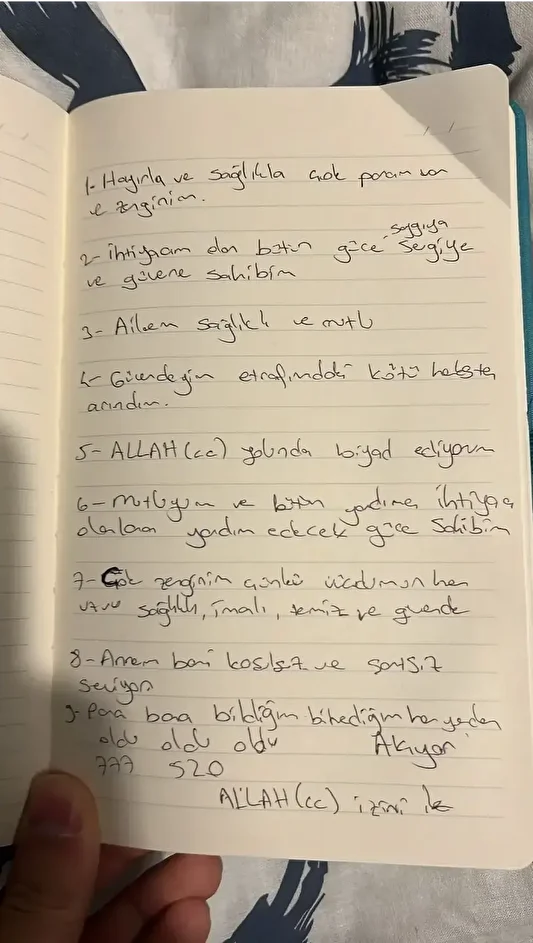 1- Hayırla ve sağlıkla çok param var
ve zenginim.
saygıya
2- ihtiyacım olan bütün güce sevgiye
ve güvene sahibim
3- Ailem sağlıklı ve mutlu
4- Güvendeyim etrafımdaki kötü
arındım.
5- ALLAH (cc) yolunda ediyorum
6- mutluyum ve bütün yardıma ihtiyacı
olanlara yardım edecek güce Sahibim
7- Çok zenginim çünkü vücudumun her
uzvu sağlıklı, temiz ve güvende
8- Annem beni koşulsuz ve şartsız
seviyor
9- Para bana bildiğim bilmediğim her yerden
oldu oldu oldu Akıyor
777 520
ALLAH (cc) izini ile